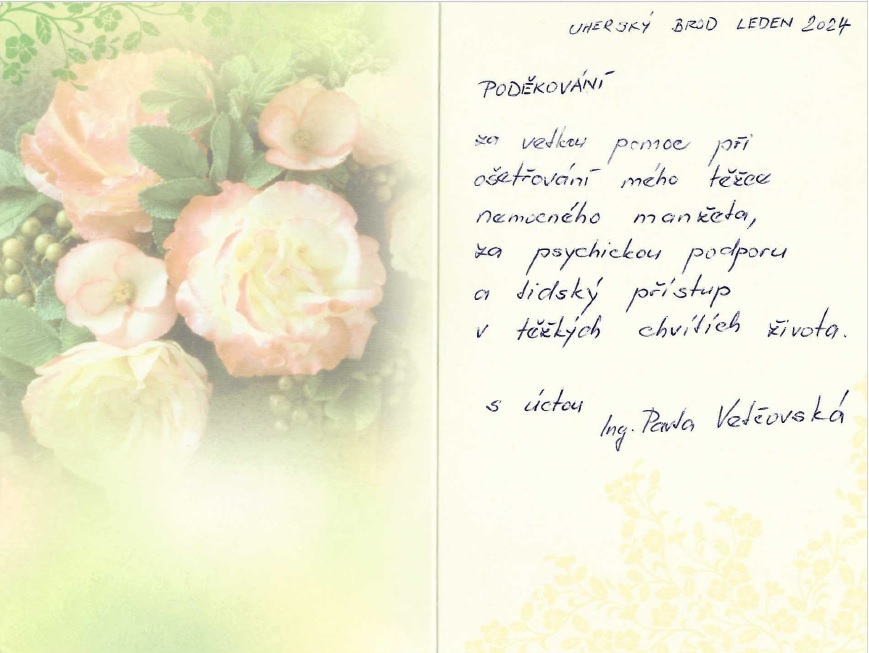 UHERSKÝ BROD LEDEN 2024
PODĚKOVÁNÍ
za velkou pomoc při
ošetřování mého těžce
nemocného manžela,
za psychickou podporu
a lidský přístup
v těžkých chvílích života.
s úctou
Ing. Pavla Velčovská